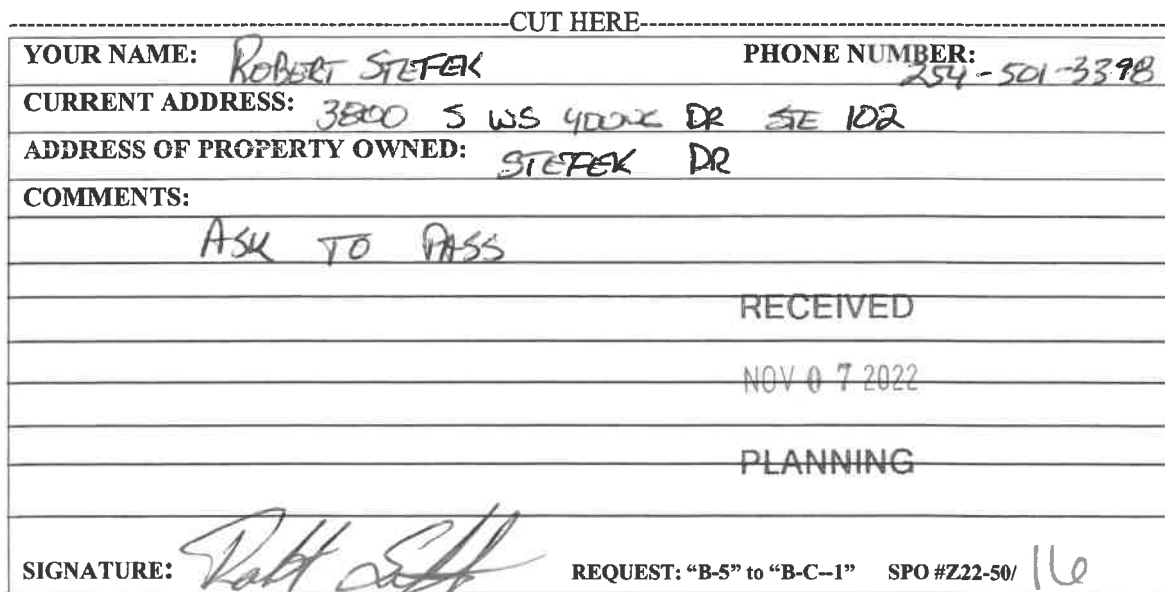 CUT HERE
YOUR NAME: ROBERT STEFEK PHONE NUMBER: 254-501-3398
CURRENT ADDRESS: 3800 S WS YOUNG DR STE 102
ADDRESS OF PROPERTY OWNED: STEFEK DR
COMMENTS:
ASK TO PASS
RECEIVED
NOV 07 2022
PLANNING
SIGNATURE: REQUEST: "B-5" to "B-C--1" SPO #Z22-50/ 16